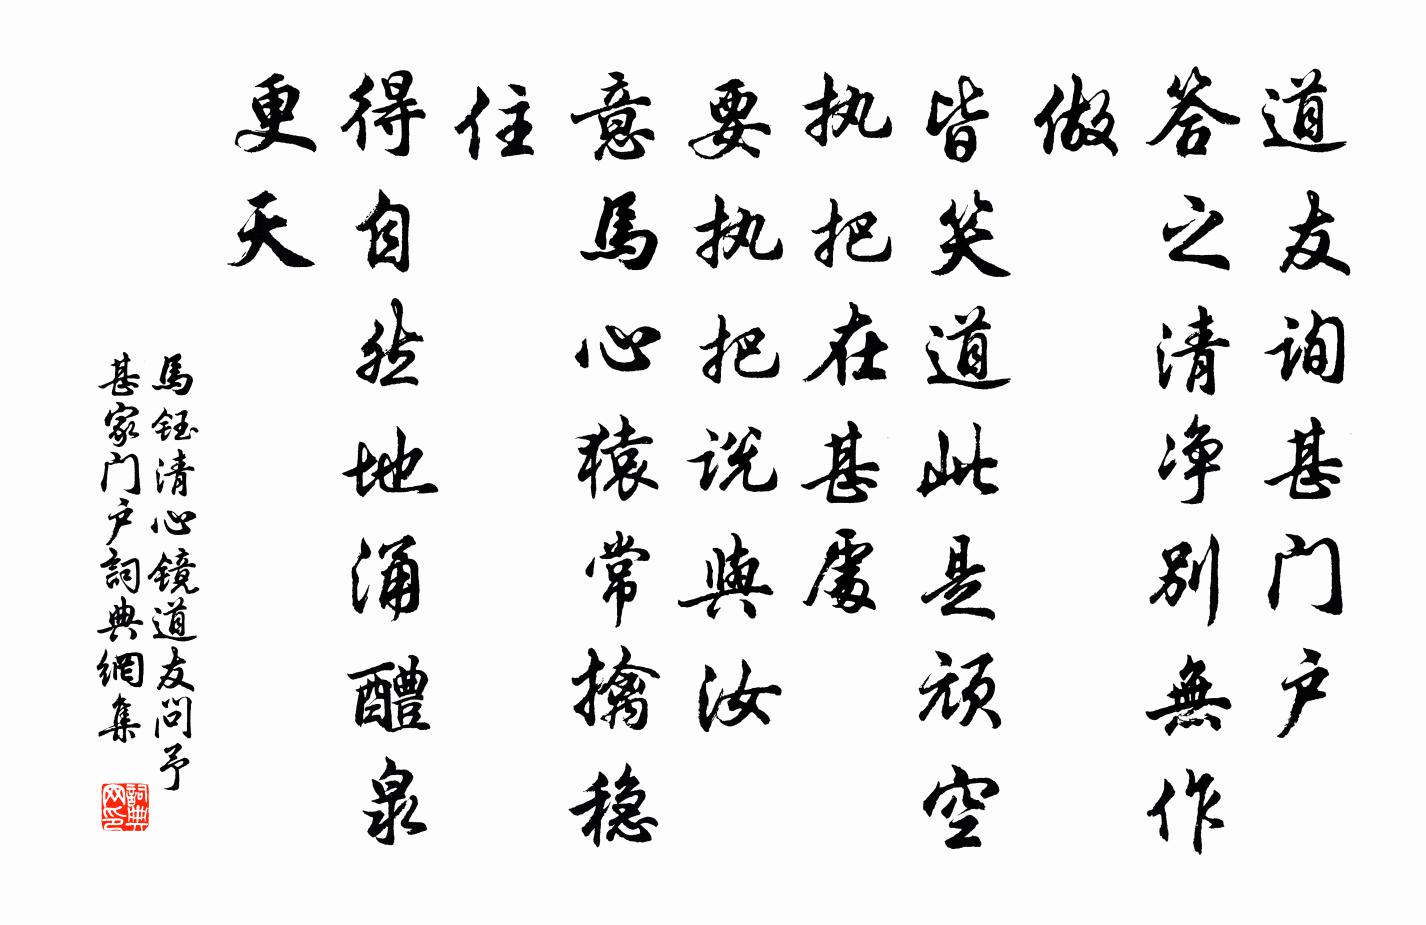 道友询甚门户
答之清净别無作
做
皆笑道此是顽空
执把在甚處
要执把说與汝
意馬心猿常擒稳
住
得自然地涌醴泉
更天
馬钰清心镜道友問予
甚家门户詞典網集
詞典
网印